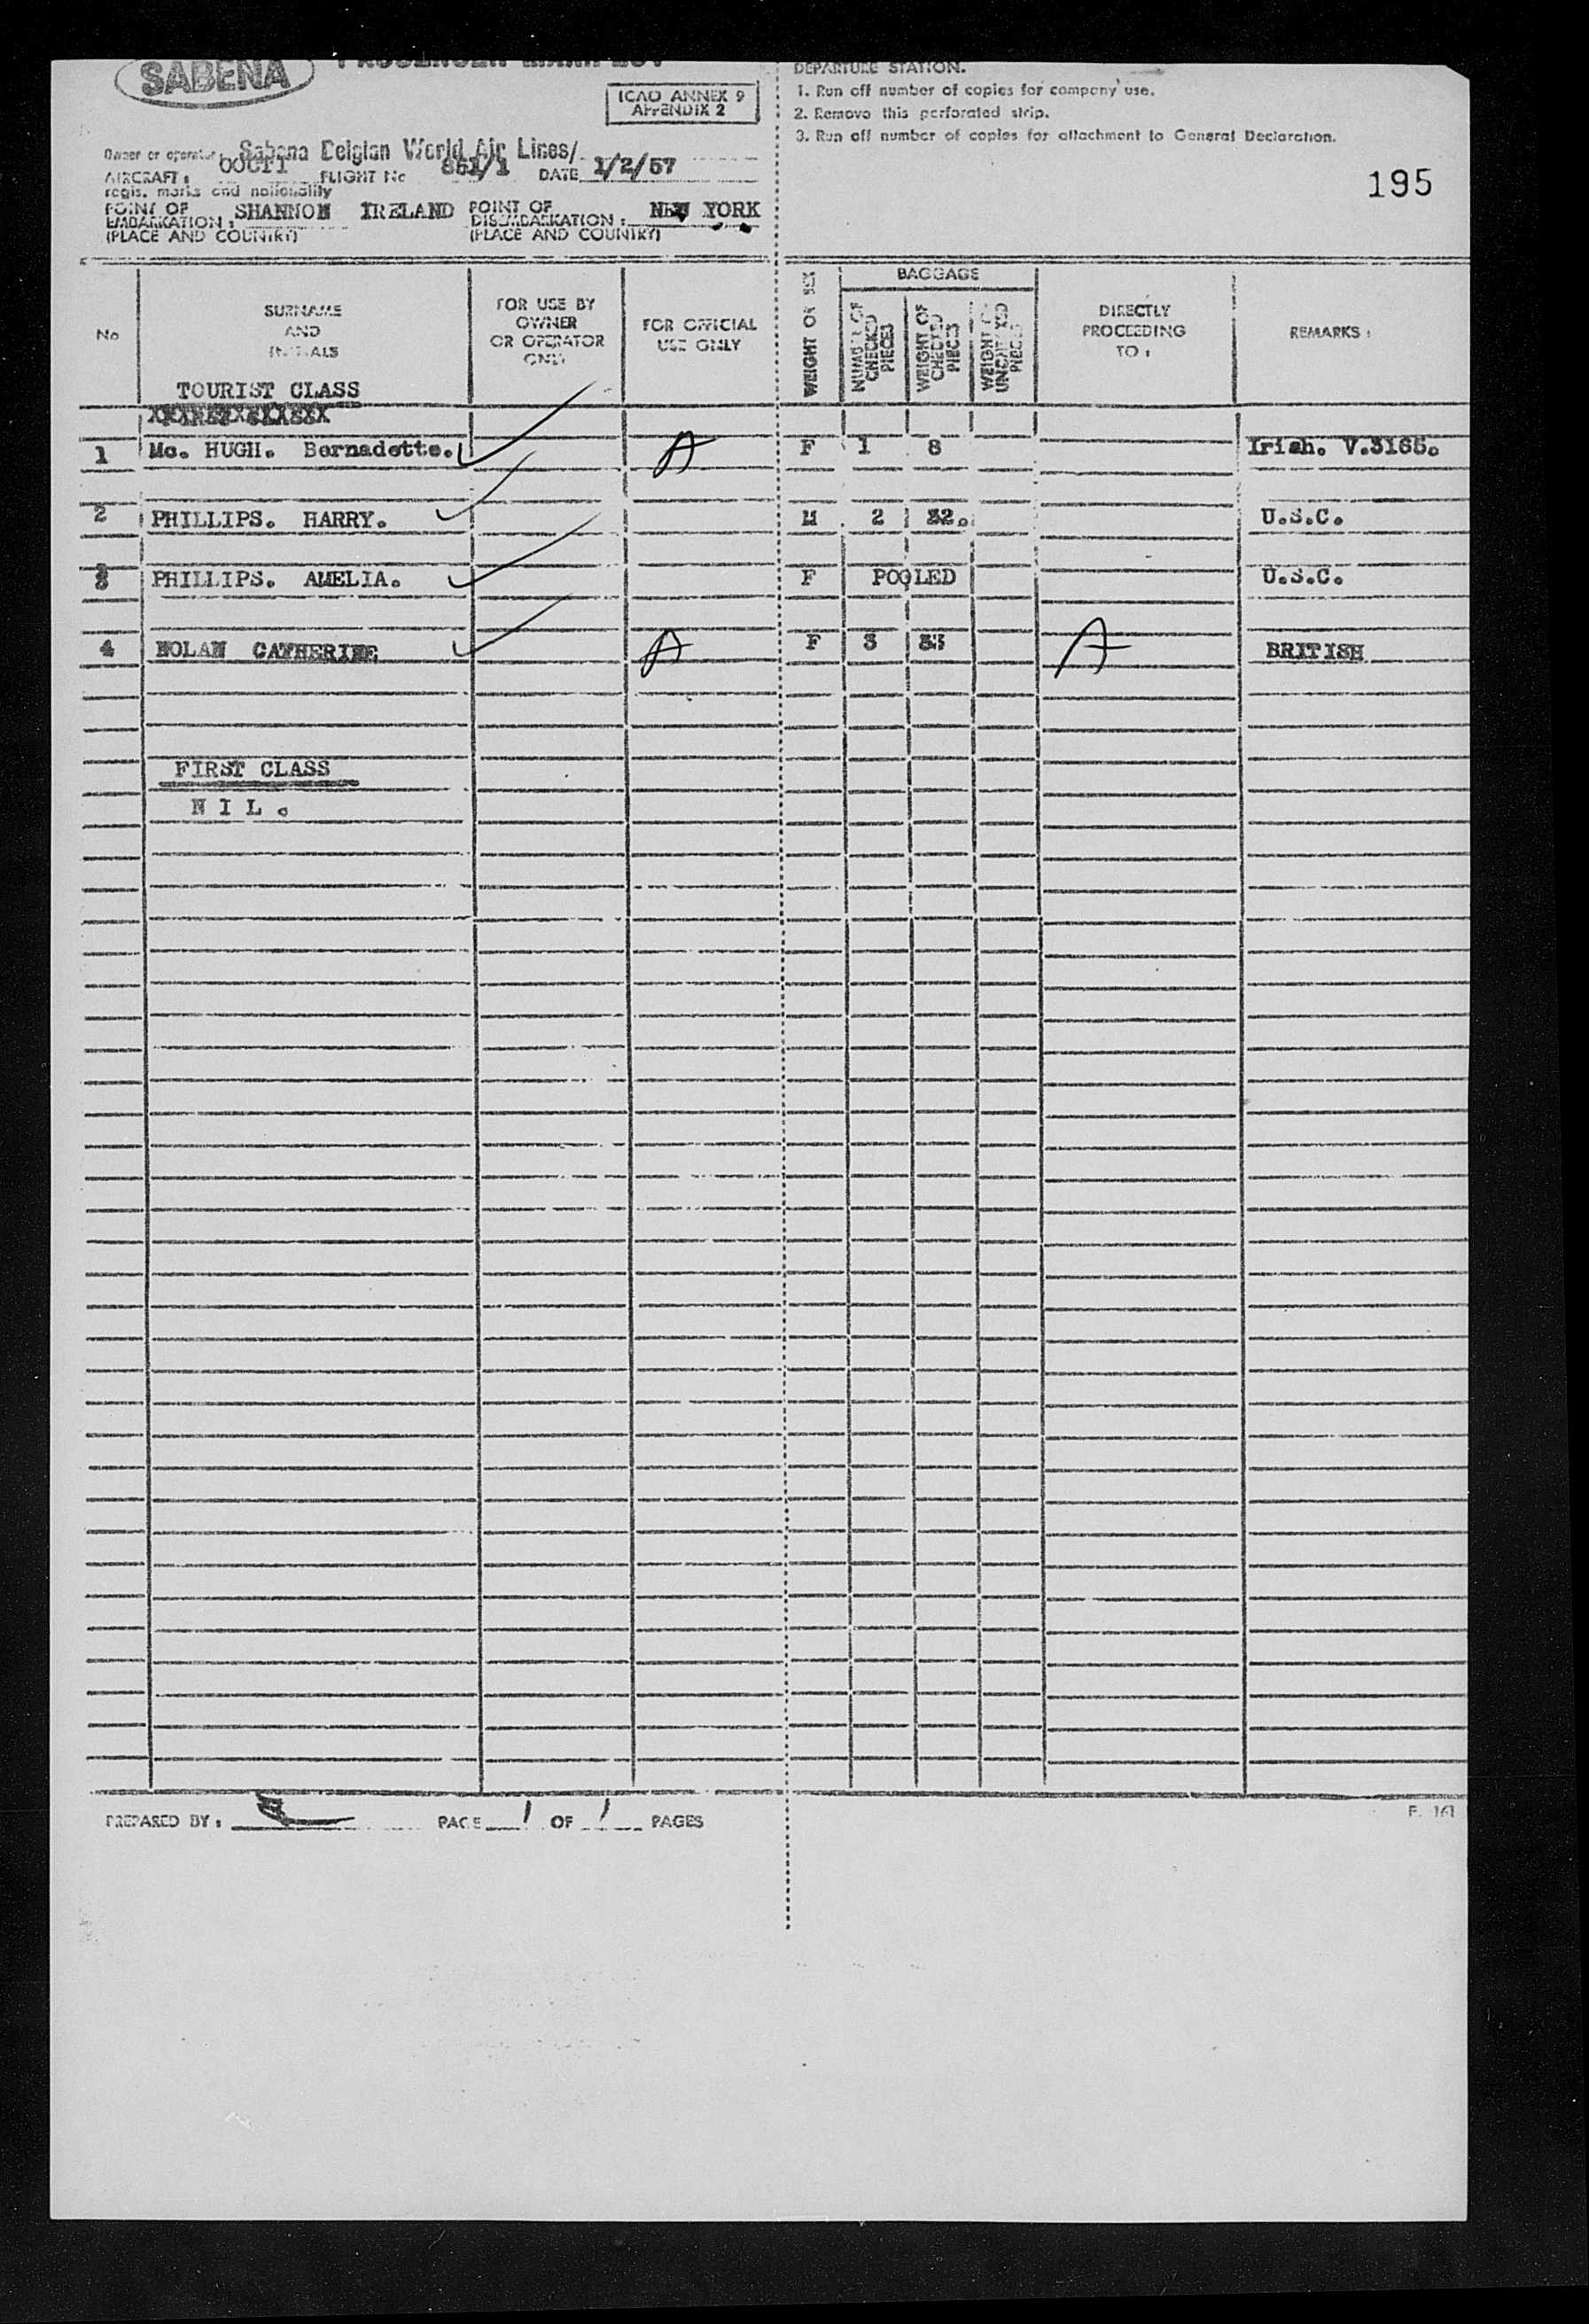 SABENA
PASSENGER MANIFEST
ICAO ANNEX 9
APPENDIX 2
DEPARTURE STATION.
1. Run off number of copies for company use.
2. Remove this perforated strip.
3. Run off number of copies for attachment to General Declaration.
195
Owner or operator: Sabena Belgian World Air Lines/
AIRCRAFT: FLIGHT No 851/1 DATE 1/2/57
regis. marks and nationality
POINT OF EMBARKATION: SHANNON IRELAND POINT OF DISEMBARKATION: NEW YORK
(PLACE AND COUNTRY) (PLACE AND COUNTRY)
No
SURNAME AND INITIALS
FOR USE BY OWNER OR OPERATOR ONLY
FOR OFFICIAL USE ONLY
WEIGHT OR SEX
BAGGAGE
NUMBER OF CHECKED PIECES
WEIGHT OF CHECKED PIECES
WEIGHT OF UNCHECKED PIECES
DIRECTLY PROCEEDING TO:
REMARKS:
TOURIST CLASS
1 Mc. HUGH. Bernadette. A F 1 8 Irish. V.3165.
2 PHILLIPS. HARRY. M 2 32. U.S.C.
3 PHILLIPS. AMELIA. F POOLED U.S.C.
4 NOLAN CATHERINE A F 3 A BRITISH
FIRST CLASS
N I L.
PREPARED BY: PAGE 1 OF 1 PAGES
F. 161